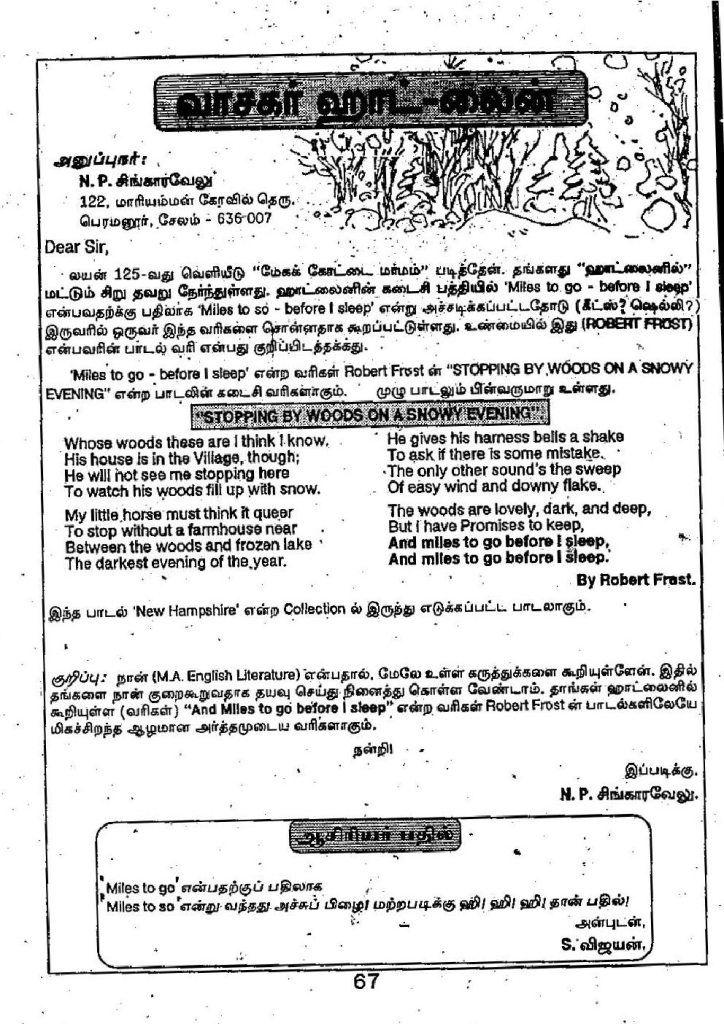 வாசகர் ஹாட்-லைன்
அனுப்புநர்:
N. P. சிங்காரவேலு
122, மாரியம்மன் கோவில் தெரு.
பெரமனூர், சேலம் - 636-007
Dear Sir,
லயன் 125-வது வெளியீடு “மேகக் கோட்டை மர்மம்” படித்தேன். தங்களது “ஹாட்லைனில்”
மட்டும் சிறு தவறு நேர்ந்துள்ளது. ஹாட்லைனின் கடைசி பத்தியில் 'Miles to go - before I sleep'
என்பவதற்க்கு பதிலாக 'Miles to so - before I sleep' என்று அச்சடிக்கப்பட்டதோடு (கீட்ஸ்? ஷெல்லி?)
இருவரில் ஒருவர் இந்த வரிகளை சொன்னதாக கூறப்பட்டுள்ளது. உண்மையில் இது (ROBERT FROST)
என்பவரின் பாடல் வரி என்பது குறிப்பிடத்தக்கது.
'Miles to go - before I sleep' என்ற வரிகள் Robert Frost ன் “STOPPING BY WOODS ON A SNOWY
EVENING” என்ற பாடலின் கடைசி வரிகளாகும். முழு பாடலும் பின்வருமாறு உள்ளது.
“STOPPING BY WOODS ON A SNOWY EVENING”.
Whose woods these are I think I know.
His house is in the Village, though;
He will not see me stopping here
To watch his woods fill up with snow.
My little horse must think it queer
To stop without a farmhouse near
Between the woods and frozen lake
The darkest evening of the year.
He gives his harness bells a shake
To ask if there is some mistake.
The only other sound's the sweep
Of easy wind and downy flake.
The woods are lovely, dark, and deep,
But I have Promises to keep,
And miles to go before I sleep,
And miles to go before I sleep.
By Robert Frost.
இந்த பாடல் 'New Hampshire' என்ற Collection ல் இருந்து எடுக்கப்பட்ட பாடலாகும்.
குறிப்பு: நான் (M.A. English Literature) என்பதால், மேலே உள்ள கருத்துக்களை கூறியுள்ளேன். இதில்
தங்களை நான் குறைகூறுவதாக தயவு செய்து நினைத்து கொள்ள வேண்டாம். தாங்கள் ஹாட்லைனில்
கூறியுள்ள (வரிகள்) “And Miles to go before I sleep” என்ற வரிகள் Robert Frost ன் பாடல்களிலேயே
மிகச்சிறந்த ஆழமான அர்த்தமுடைய வரிகளாகும்.
நன்றி!
இப்படிக்கு,
N. P. சிங்காரவேலு.
ஆசிரியர் பதில்
'Miles to go' என்பதற்குப் பதிலாக
'Miles to so' என்று வந்தது அச்சுப் பிழை! மற்றபடிக்கு ஹி! ஹி! ஹி! தான் பதில்!
அன்புடன்,
S. விஜயன்,
67